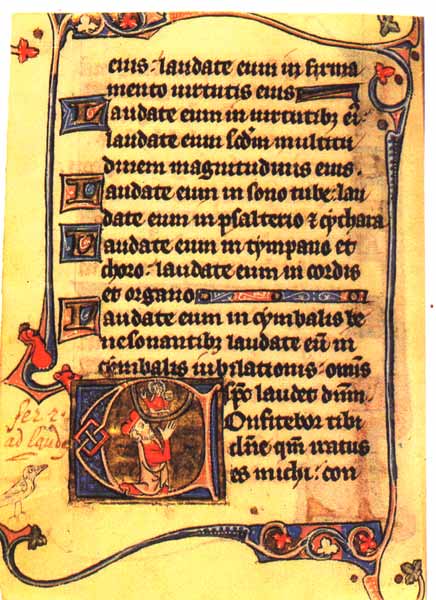 eius. laudate eum in firma
mento uirtutis eius
Laudate eum in uirtutibꝫ ei.
laudate eum scd̄m multitu
dinem magnitudinis eius.
Laudate eum in sono tube. lau
date eum in psalterio ⁊ cythara
Laudate eum in tympano et
choro. laudate eum in cordis
et organo
Laudate eum in cymbalis be
nesonantibus laudate eū in
cymbalis iubilationis. omnis
sp̄c laudet dn̄m.
Confitebor tibi
dn̄e qm̄ iratus
es michi. con
fer. 2.
ad laude